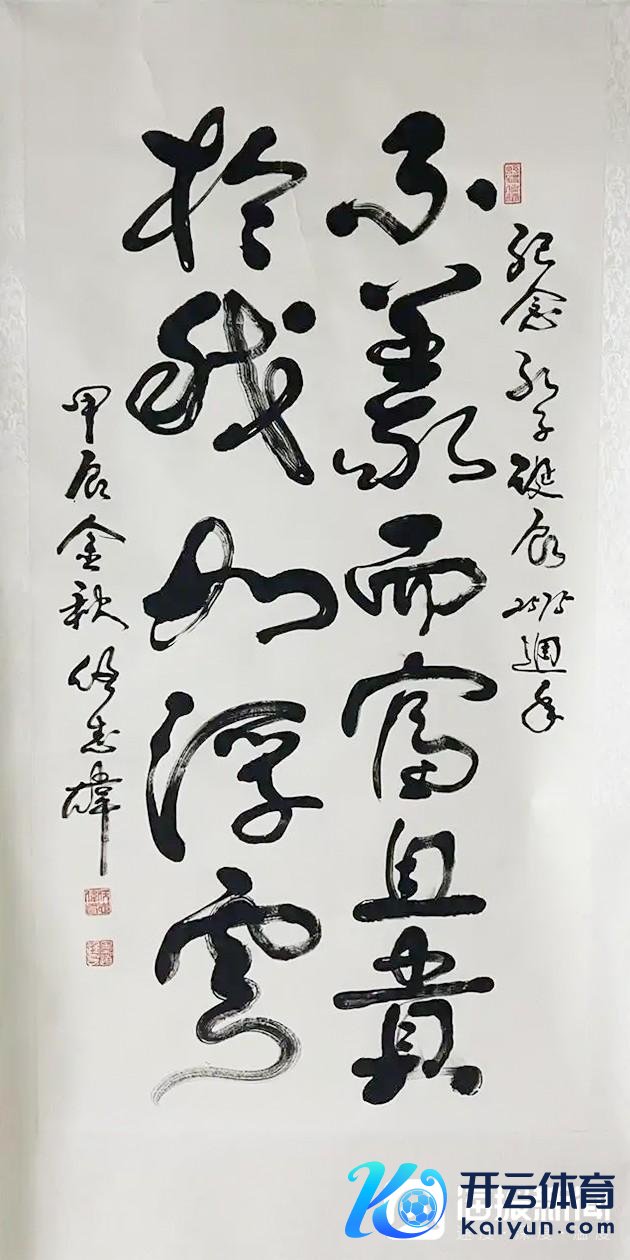 纪念孔子诞辰2575週年
不義而富且貴
於我如浮雲
甲辰金秋
开云体育
Kaiyun.com
海报新闻